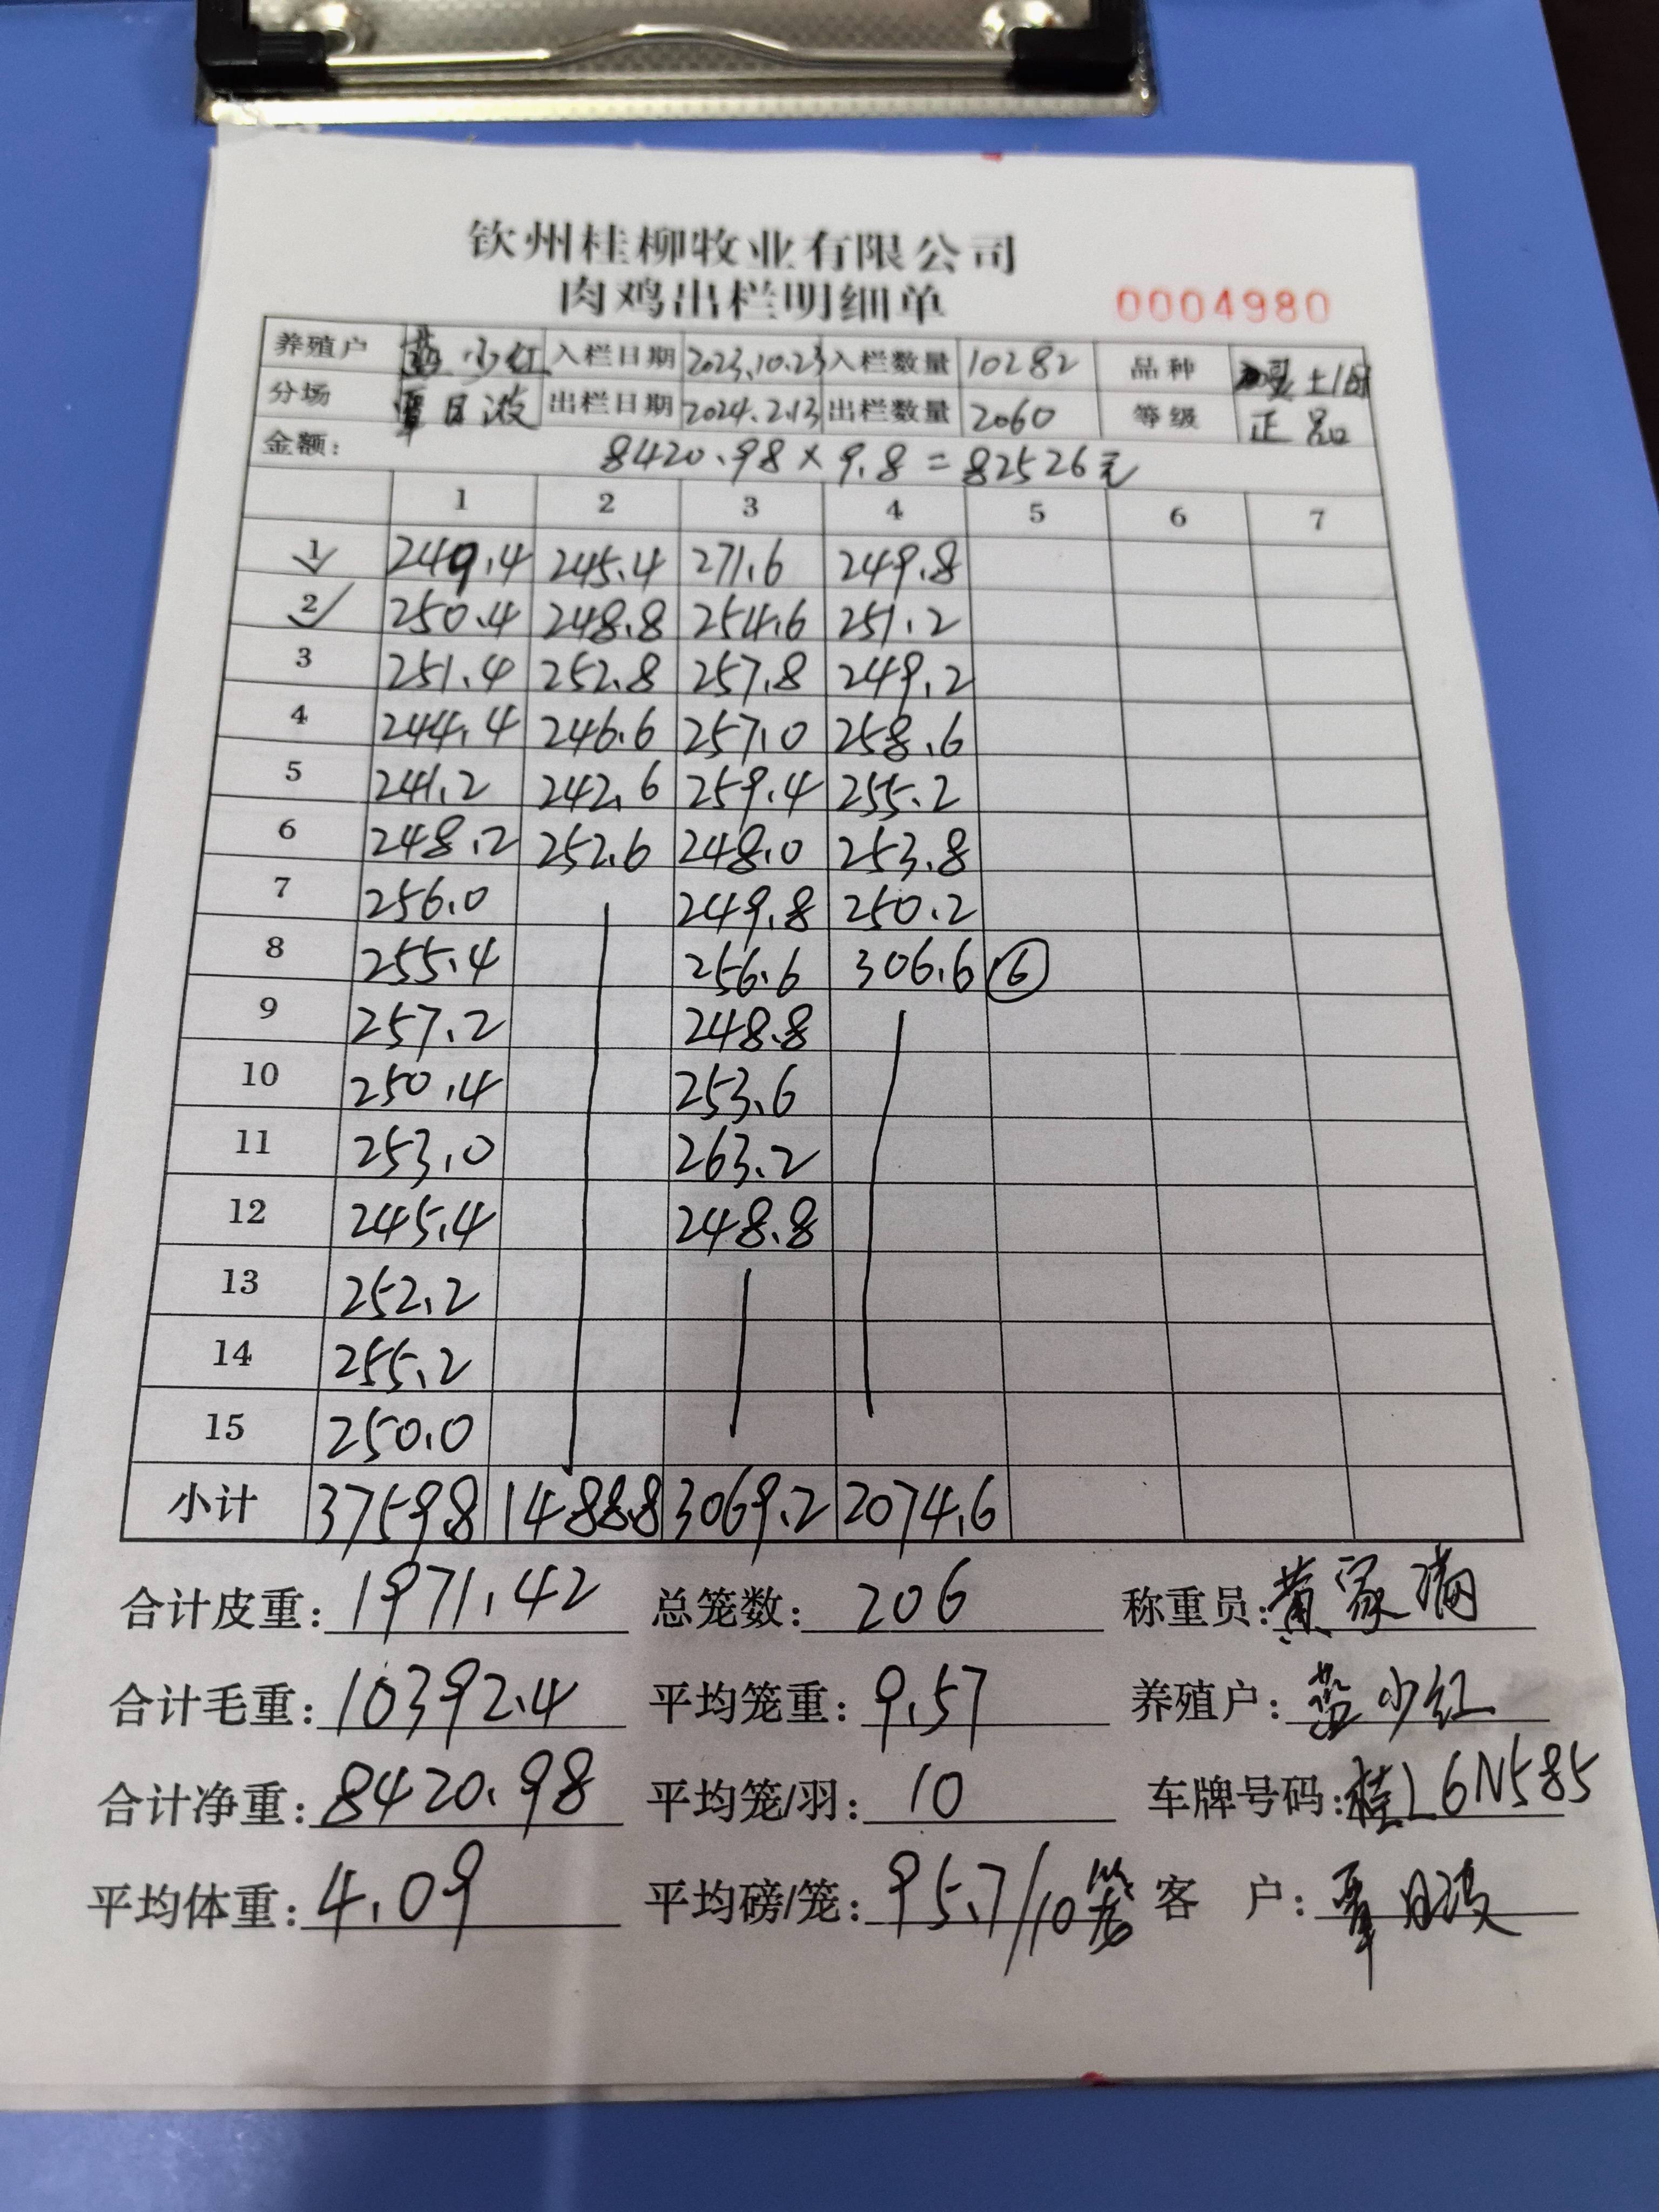 钦州桂柳牧业有限公司
肉鸡出栏明细单 0004980
养殖户 蓝少红 入栏日期 2023.10.23 入栏数量 10282 品种 土1号
分场 覃日波 出栏日期 2024.2.13 出栏数量 2060 等级 正品
金额: 8420.98×9.8=82526元
1 2 3 4 5 6 7
1 249.4 245.4 271.6 249.8
2 250.4 248.8 254.6 251.2
3 251.4 252.8 257.8 249.2
4 244.4 246.6 257.0 258.6
5 241.2 242.6 259.4 255.2
6 248.2 252.6 248.0 253.8
7 256.0 249.8 250.2
8 255.4 256.6 306.6 ⑥
9 257.2 248.8
10 250.4 253.6
11 253.0 263.2
12 245.4 248.8
13 252.2
14 255.2
15 250.0
小计 3759.8 1488.8 3069.2 2074.6
合计皮重: 1971.42 总笼数: 206 称重员: 黄家满
合计毛重: 10392.4 平均笼重: 9.57 养殖户: 蓝少红
合计净重: 8420.98 平均笼/羽: 10 车牌号码: 桂L6N585
平均体重: 4.09 平均磅/笼: 95.7/10笼 客 户: 覃日波